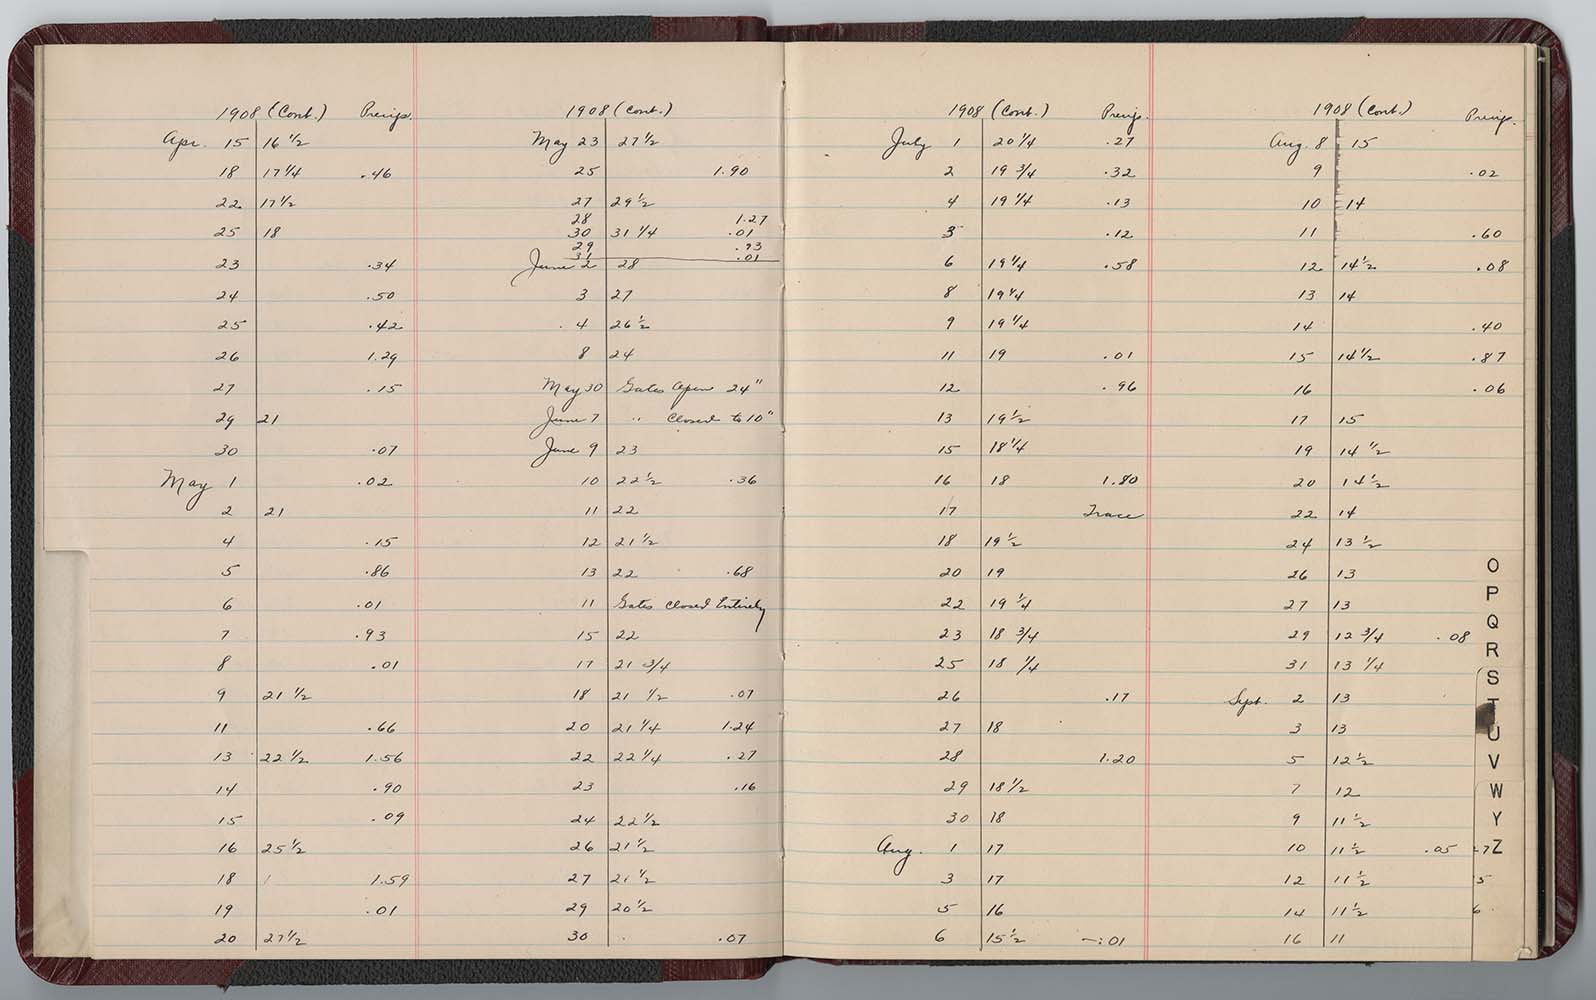 1908 (Cont.) Precip.
Apr. 15 16 1/2
18 17 1/4 .46
22 17 1/2
25 18
23 .34
24 .50
25 .42
26 1.29
27 .15
29 21
30 .07
May 1 .02
2 21
4 .15
5 .86
6 .01
7 .93
8 .01
9 21 1/2
11 .66
13 22 1/2 1.56
14 .90
15 .09
16 25 1/2
18 1.59
19 .01
20 27 1/2
1908 (Cont.)
May 23 27 1/2
25 1.90
27 29 1/2
28 1.27
30 31 1/4 .01
29 .93
31 .01
June 2 28
3 27
4 26 1/2
8 24
May 30 Gates Open 24"
June 7 " Closed to 10"
June 9 23
10 22 1/2 .36
11 22
12 21 1/2
13 22 .68
11 Gates Closed Entirely
15 22
17 21 3/4
18 21 1/2 .07
20 21 1/4 1.24
22 22 1/4 .27
23 .16
24 22 1/2
26 21 1/2
27 21 1/2
29 20 1/2
30 .07
1908 (Cont.) Precip.
July 1 20 1/4 .27
2 19 3/4 .32
4 19 1/4 .13
3 .12
6 19 1/4 .58
8 19 1/4
9 19 1/4
11 19 .01
12 .96
13 19 1/2
15 18 1/4
16 18 1.80
17 Trace
18 19 1/2
20 19
22 19 1/4
23 18 3/4
25 18 1/4
26 .17
27 18
28 1.20
29 18 1/2
30 18
Aug. 1 17
3 17
5 16
6 15 1/2 .01
1908 (Cont.) Precip.
Aug. 8 15
9 .02
10 14
11 .60
12 14 1/2 .08
13 14
14 .40
15 14 1/2 .87
16 .06
17 15
19 14 1/2
20 14 1/2
22 14
24 13 1/2
26 13
27 13
29 12 3/4 .08
31 13 1/4
Sept. 2 13
3 13
5 12 1/2
7 12
9 11 1/2
10 11 1/2 .05
12 11 1/2
14 11 1/2
16 11
O
P
Q
R
S
T
U
V
W
Y
Z